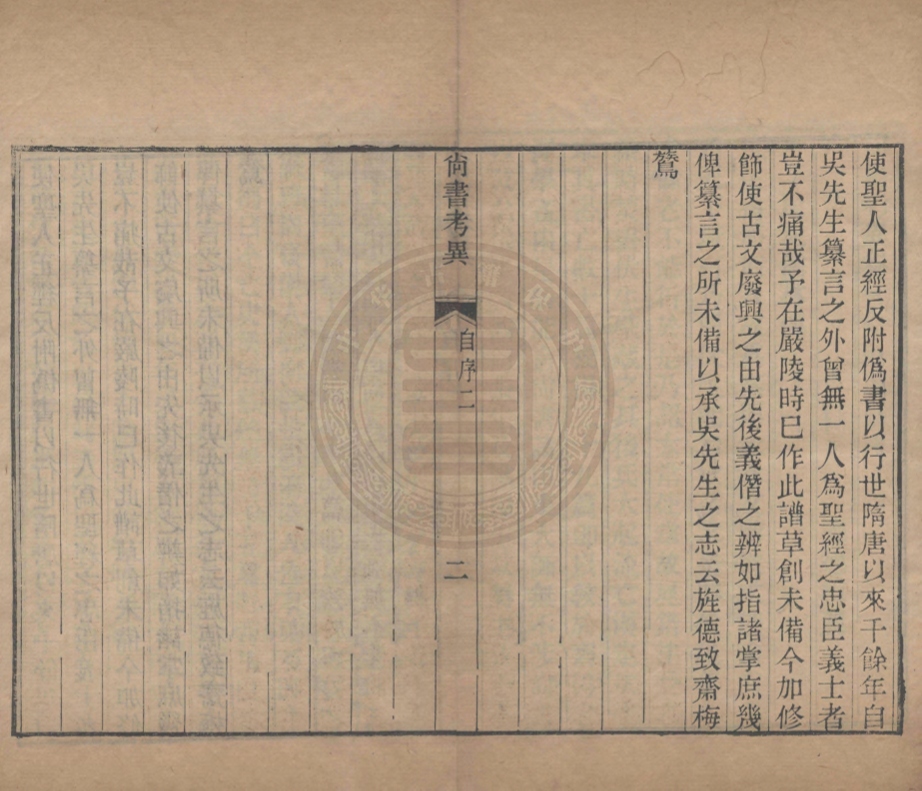 使聖人正經反附僞書以行世隋唐以來千餘年自
吳先生纂言之外曾無一人爲聖經之忠臣義士者
豈不痛哉予在嚴陵時已作此譜草創未備今加修
飾使古文廢興之由先後義僭之辨如指諸掌庶幾
俾纂言之所未備以承吳先生之志云旌德致齋梅
鷟
尙書考異
自序二
二